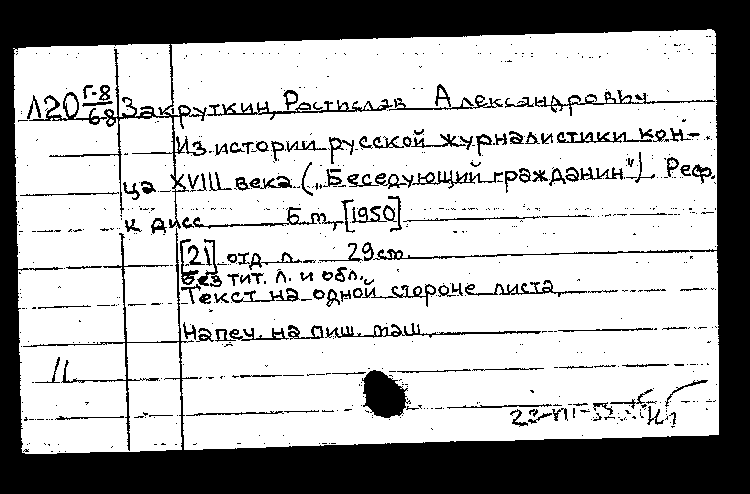 Л20 Г-8/68 Закруткин, Ростислав Александрович
Из истории русской журналистики кон-
ца XVIII века („Беседующий гражданин"). Реф.
к дисс. Б.м., [1950]
[21] отд. л. 29 см.
без тит. л. и обл.
Текст на одной стороне листа.
Напеч. на пиш. маш.
11